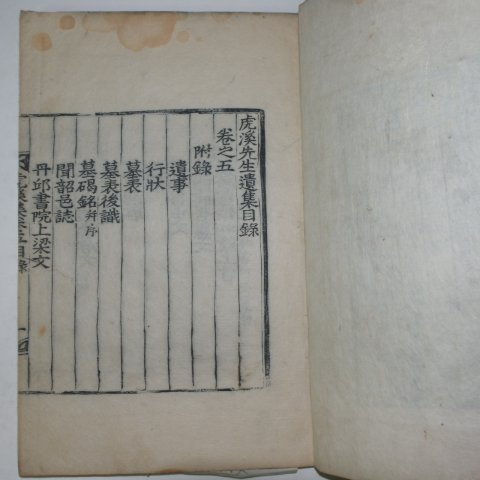 虎溪先生遺集目錄
卷之五
附錄
遺事
行狀
墓表
墓表後識
墓碣銘并序
聞韶邑誌
丹邱書院上梁文
虎溪集卷五目錄
一